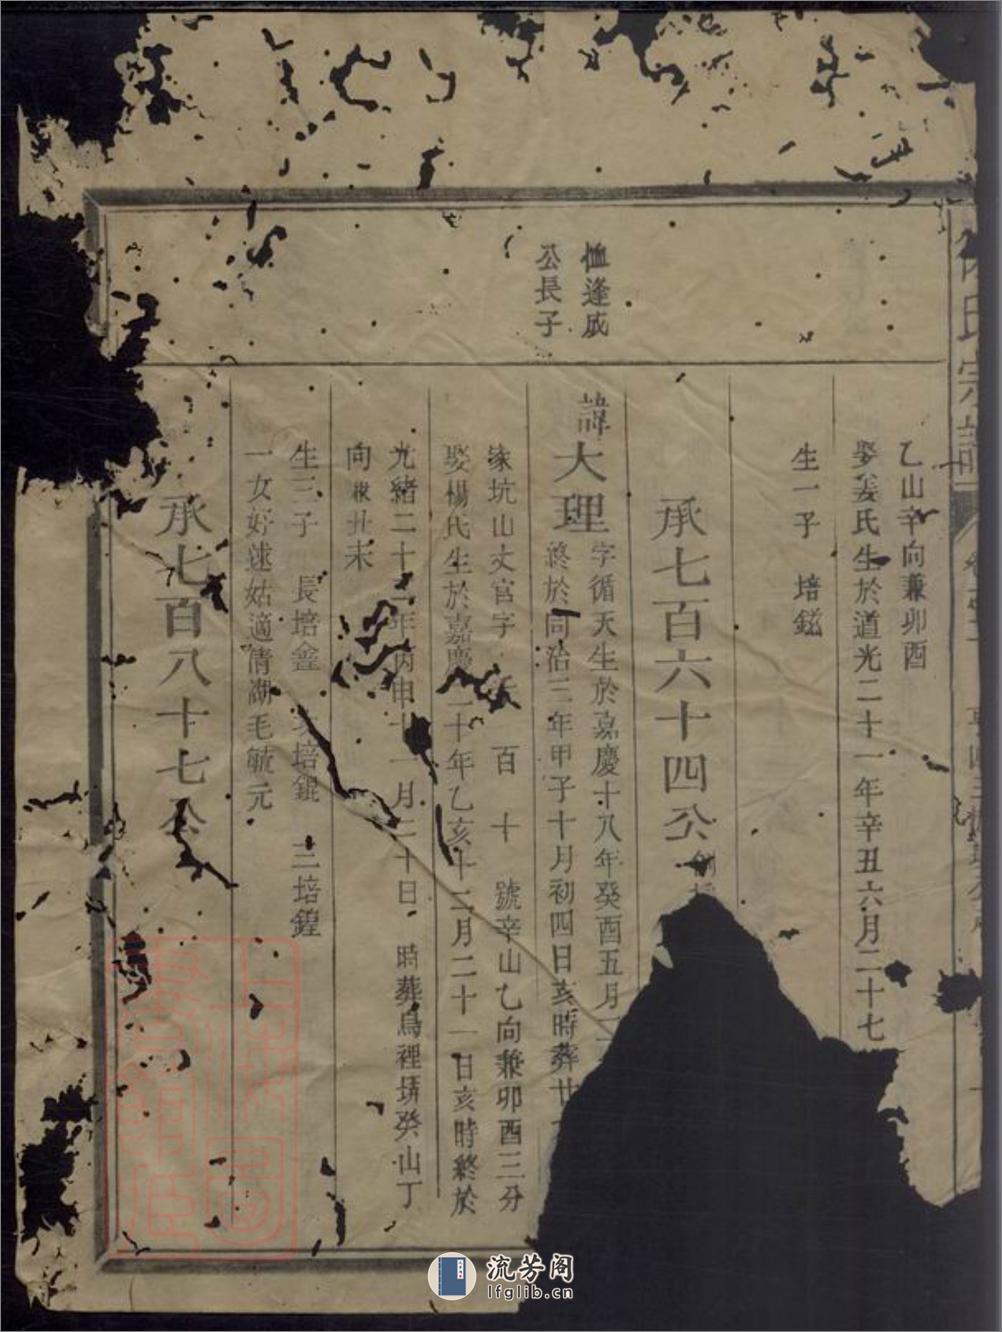 氏宗譜
乙山辛向兼卯酉
娶姜氏生於道光二十一年辛丑六月二十七
生一子 培鎡
承七百六十四公
恤逢成
公長子
諱大理
字循天生於嘉慶十八年癸酉五月
終於同治三年甲子十月初四日亥時葬廿
坑山文官字 百 十 號辛山乙向兼卯酉三分
娶楊氏生於嘉慶二十年乙亥十二月二十一日亥時終於
光緒二十二年丙申十一月二十日 時葬烏裡塝癸山丁
向兼丑未
生三子 長培鑫 培錕 三培鍠
一女好逑姑適倩湖毛毓元
承七百八十七公
流芳阁
lfglib.cn